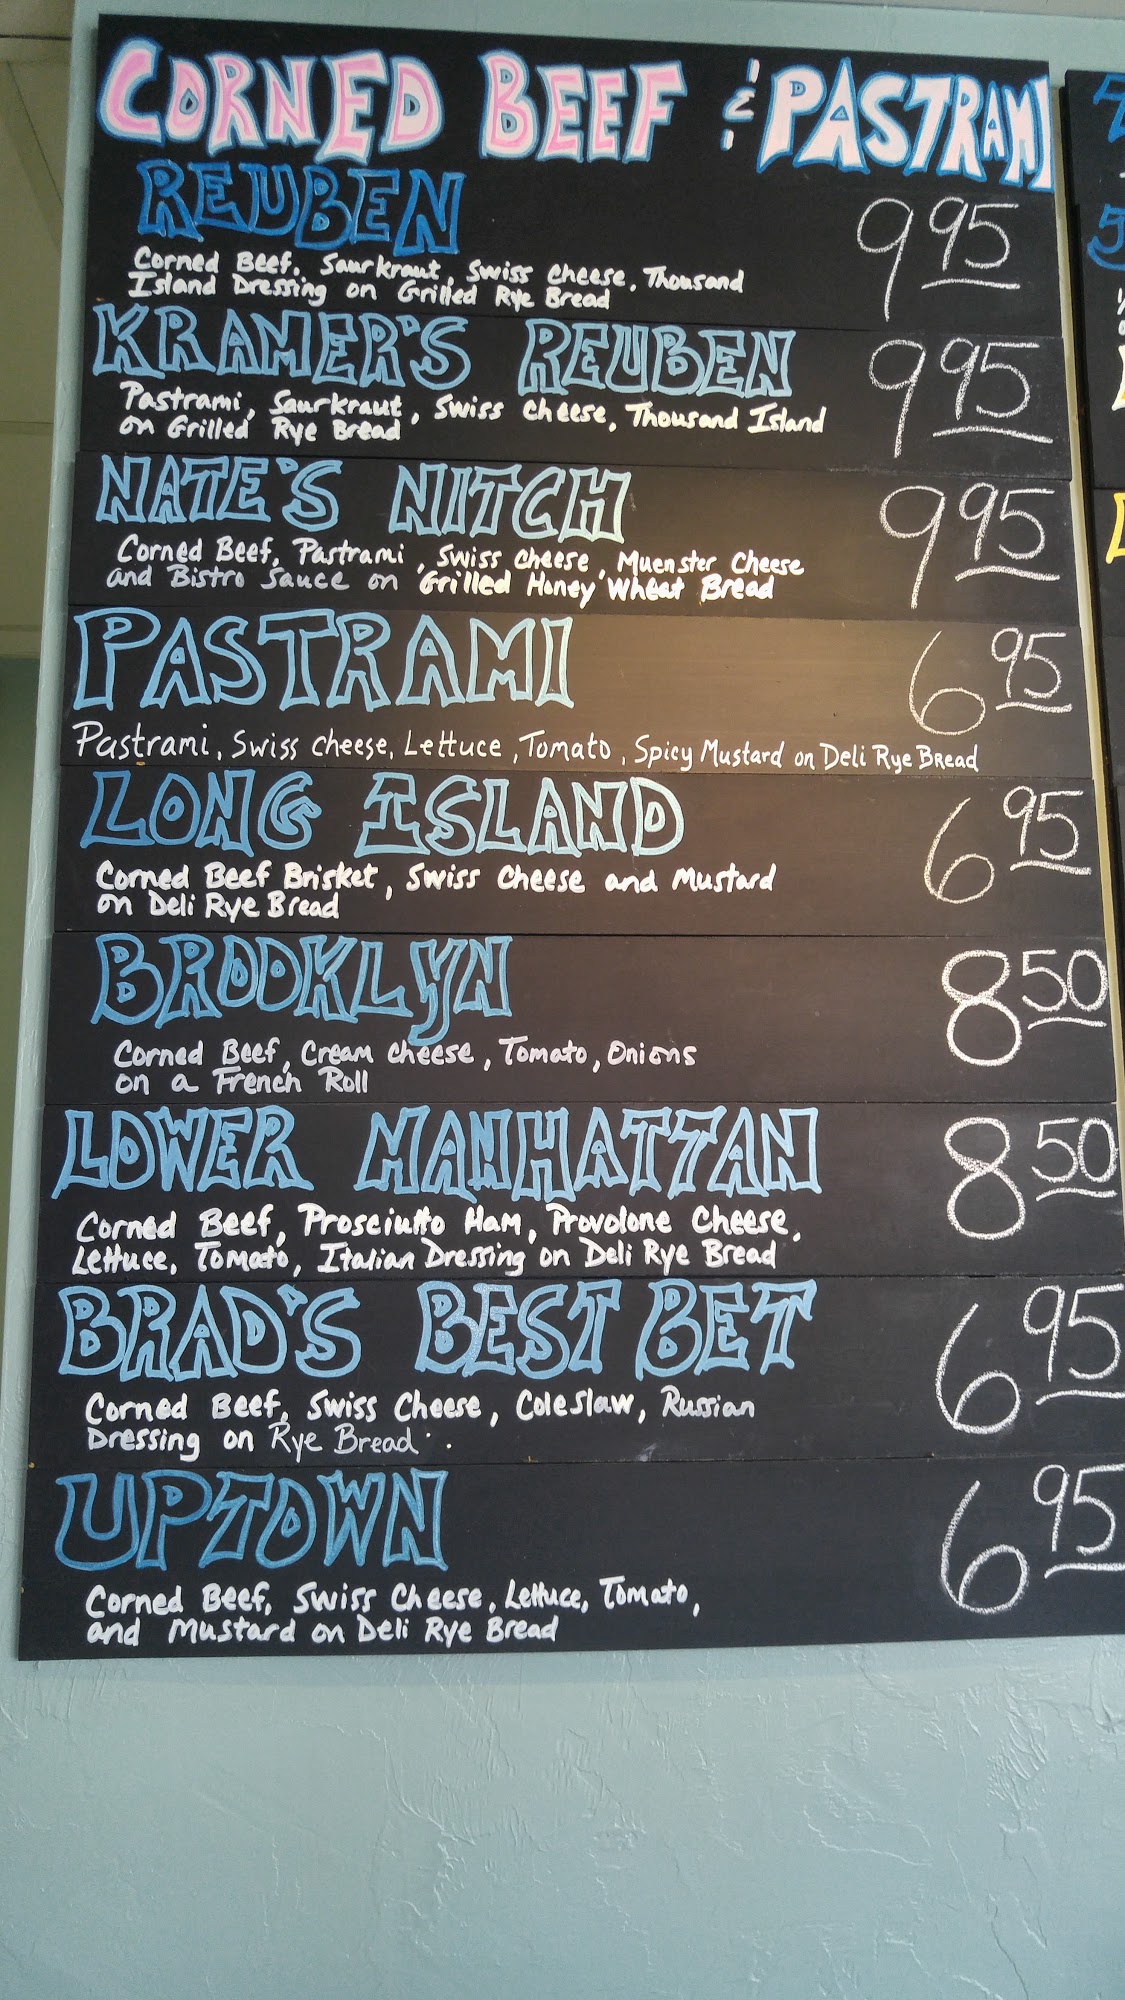 CORNED BEEF & PASTRAMI
REUBEN 9 95
Corned Beef, Saurkraut, Swiss Cheese, Thousand
Island Dressing on Grilled Rye Bread
KRAMER'S REUBEN 9 95
Pastrami, Saurkraut, Swiss Cheese, Thousand Island
on Grilled Rye Bread
NATE'S NITCH 9 95
Corned Beef, Pastrami, Swiss Cheese, Muenster Cheese
and Bistro Sauce on Grilled Honey Wheat Bread
PASTRAMI 6 95
Pastrami, Swiss Cheese, Lettuce, Tomato, Spicy Mustard on Deli Rye Bread
LONG ISLAND 6 95
Corned Beef Brisket, Swiss Cheese and Mustard
on Deli Rye Bread
BROOKLYN 8 50
Corned Beef, Cream Cheese, Tomato, Onions
on a French Roll
LOWER MANHATTAN 8 50
Corned Beef, Prosciutto Ham, Provolone Cheese,
Lettuce, Tomato, Italian Dressing on Deli Rye Bread
BRAD'S BEST BET 6 95
Corned Beef, Swiss Cheese, Coleslaw, Russian
Dressing on Rye Bread..
UPTOWN 6 95
Corned Beef, Swiss Cheese, Lettuce, Tomato,
and Mustard on Deli Rye Bread